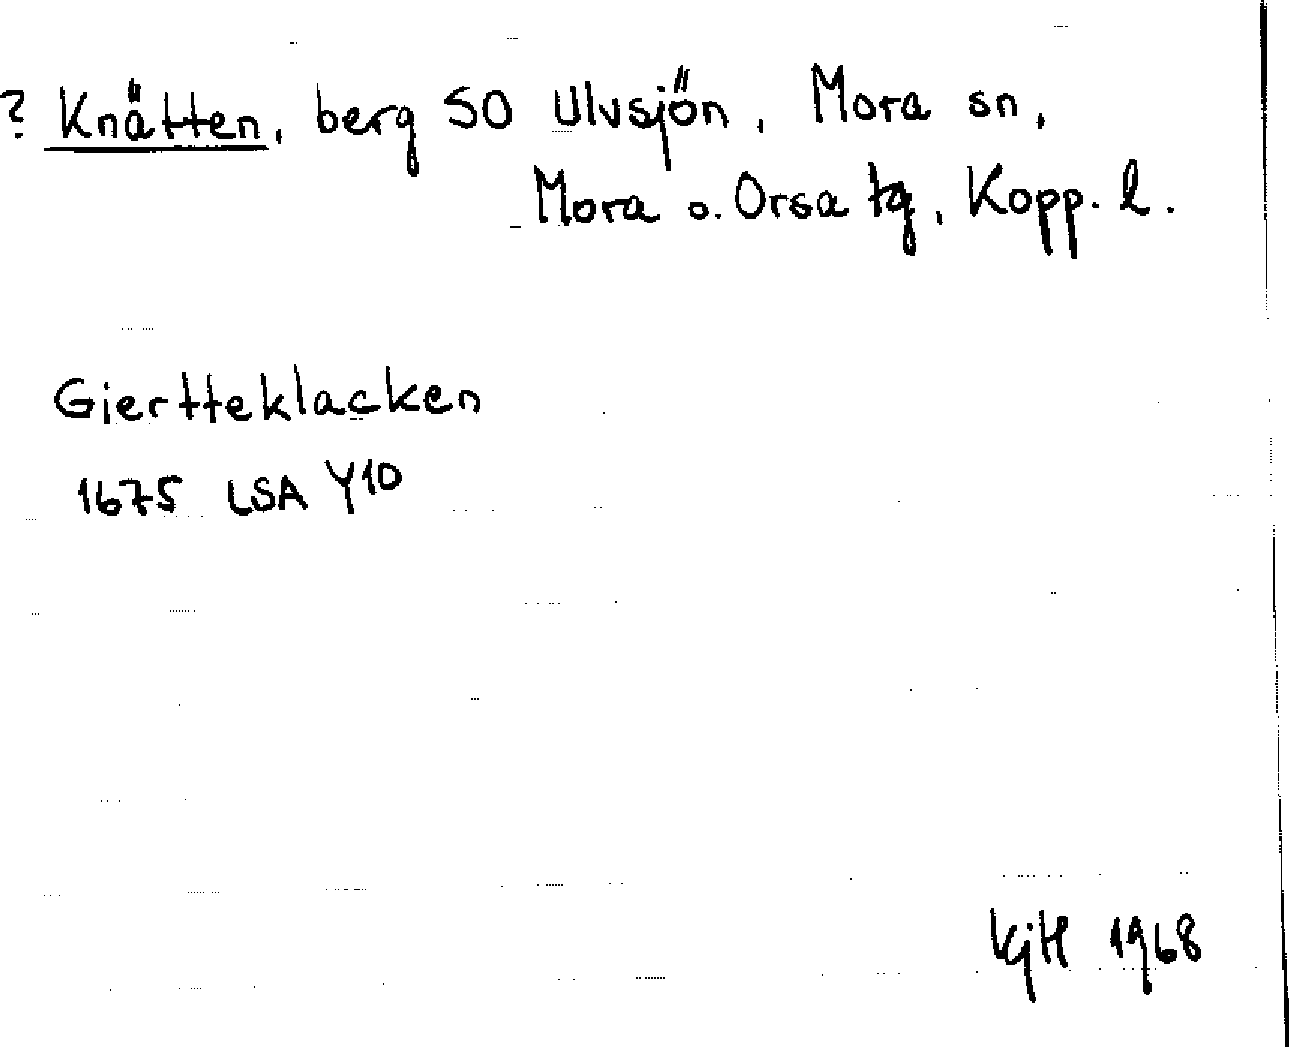 ? Knätten, berg SO Ulvsjön, Mora sn,
Mora o. Orsa tg, Kopp. l.
Giertteklacken
1675 LSA Y10
KjH 1968